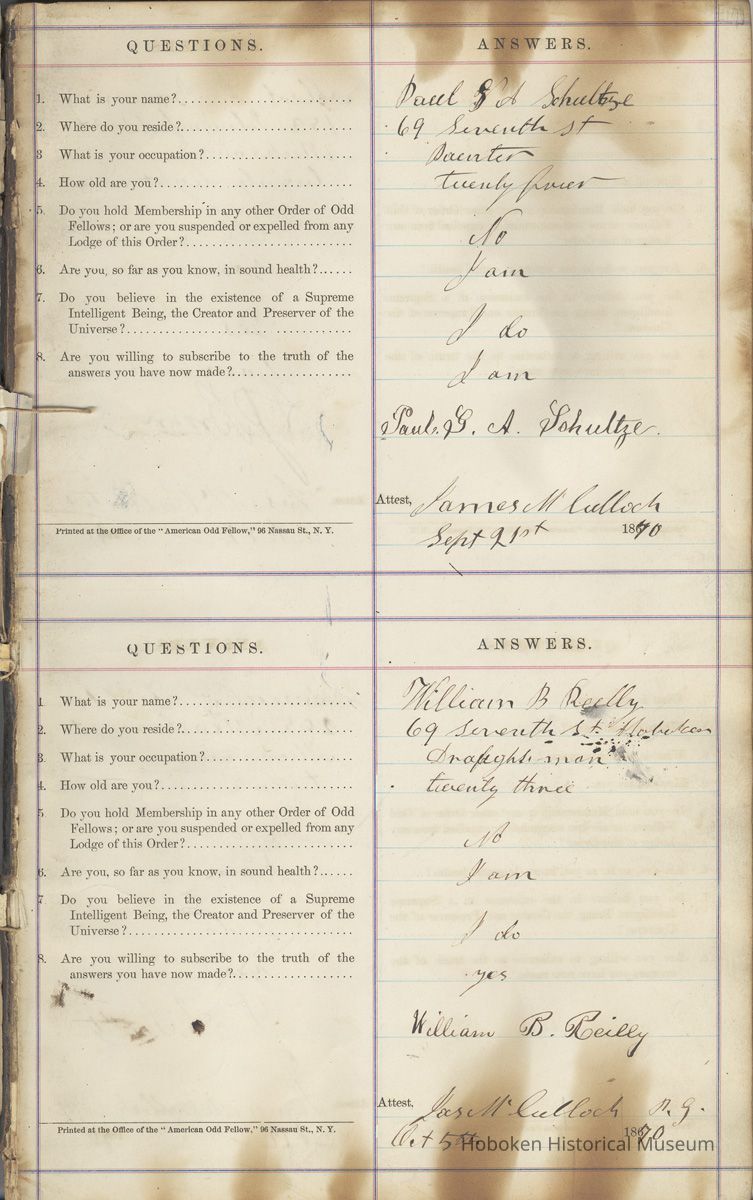 QUESTIONS. ANSWERS.
1. What is your name? Paul G A Schultze
2. Where do you reside? 69 Seventh St
3 What is your occupation? Painter
4. How old are you? twenty four
5. Do you hold Membership in any other Order of Odd
Fellows; or are you suspended or expelled from any
Lodge of this Order? No
6. Are you, so far as you know, in sound health? I am
7. Do you believe in the existence of a Supreme
Intelligent Being, the Creator and Preserver of the
Universe? I do
8. Are you willing to subscribe to the truth of the
answers you have now made? I am
Paul. G. A. Schultze.
Attest, James Mc Culloch
Printed at the Office of the "American Odd Fellow," 96 Nassau St., N. Y.
Sept 21st 1870
QUESTIONS. ANSWERS.
1 What is your name? William B Reilly
2. Where do you reside? 69 Seventh St. Hoboken
3. What is your occupation? Draughtsman
4. How old are you? twenty three
5 Do you hold Membership in any other Order of Odd
Fellows; or are you suspended or expelled from any
Lodge of this Order? No
6. Are you, so far as you know, in sound health? I am
7 Do you believe in the existence of a Supreme
Intelligent Being, the Creator and Preserver of the
Universe? I do
8. Are you willing to subscribe to the truth of the
answers you have now made? yes
William B. Reilly
Attest, Jas Mc Culloch N. G.
Printed at the Office of the "American Odd Fellow," 96 Nassau St., N. Y.
Oct 5th 1870
Hoboken Historical Museum